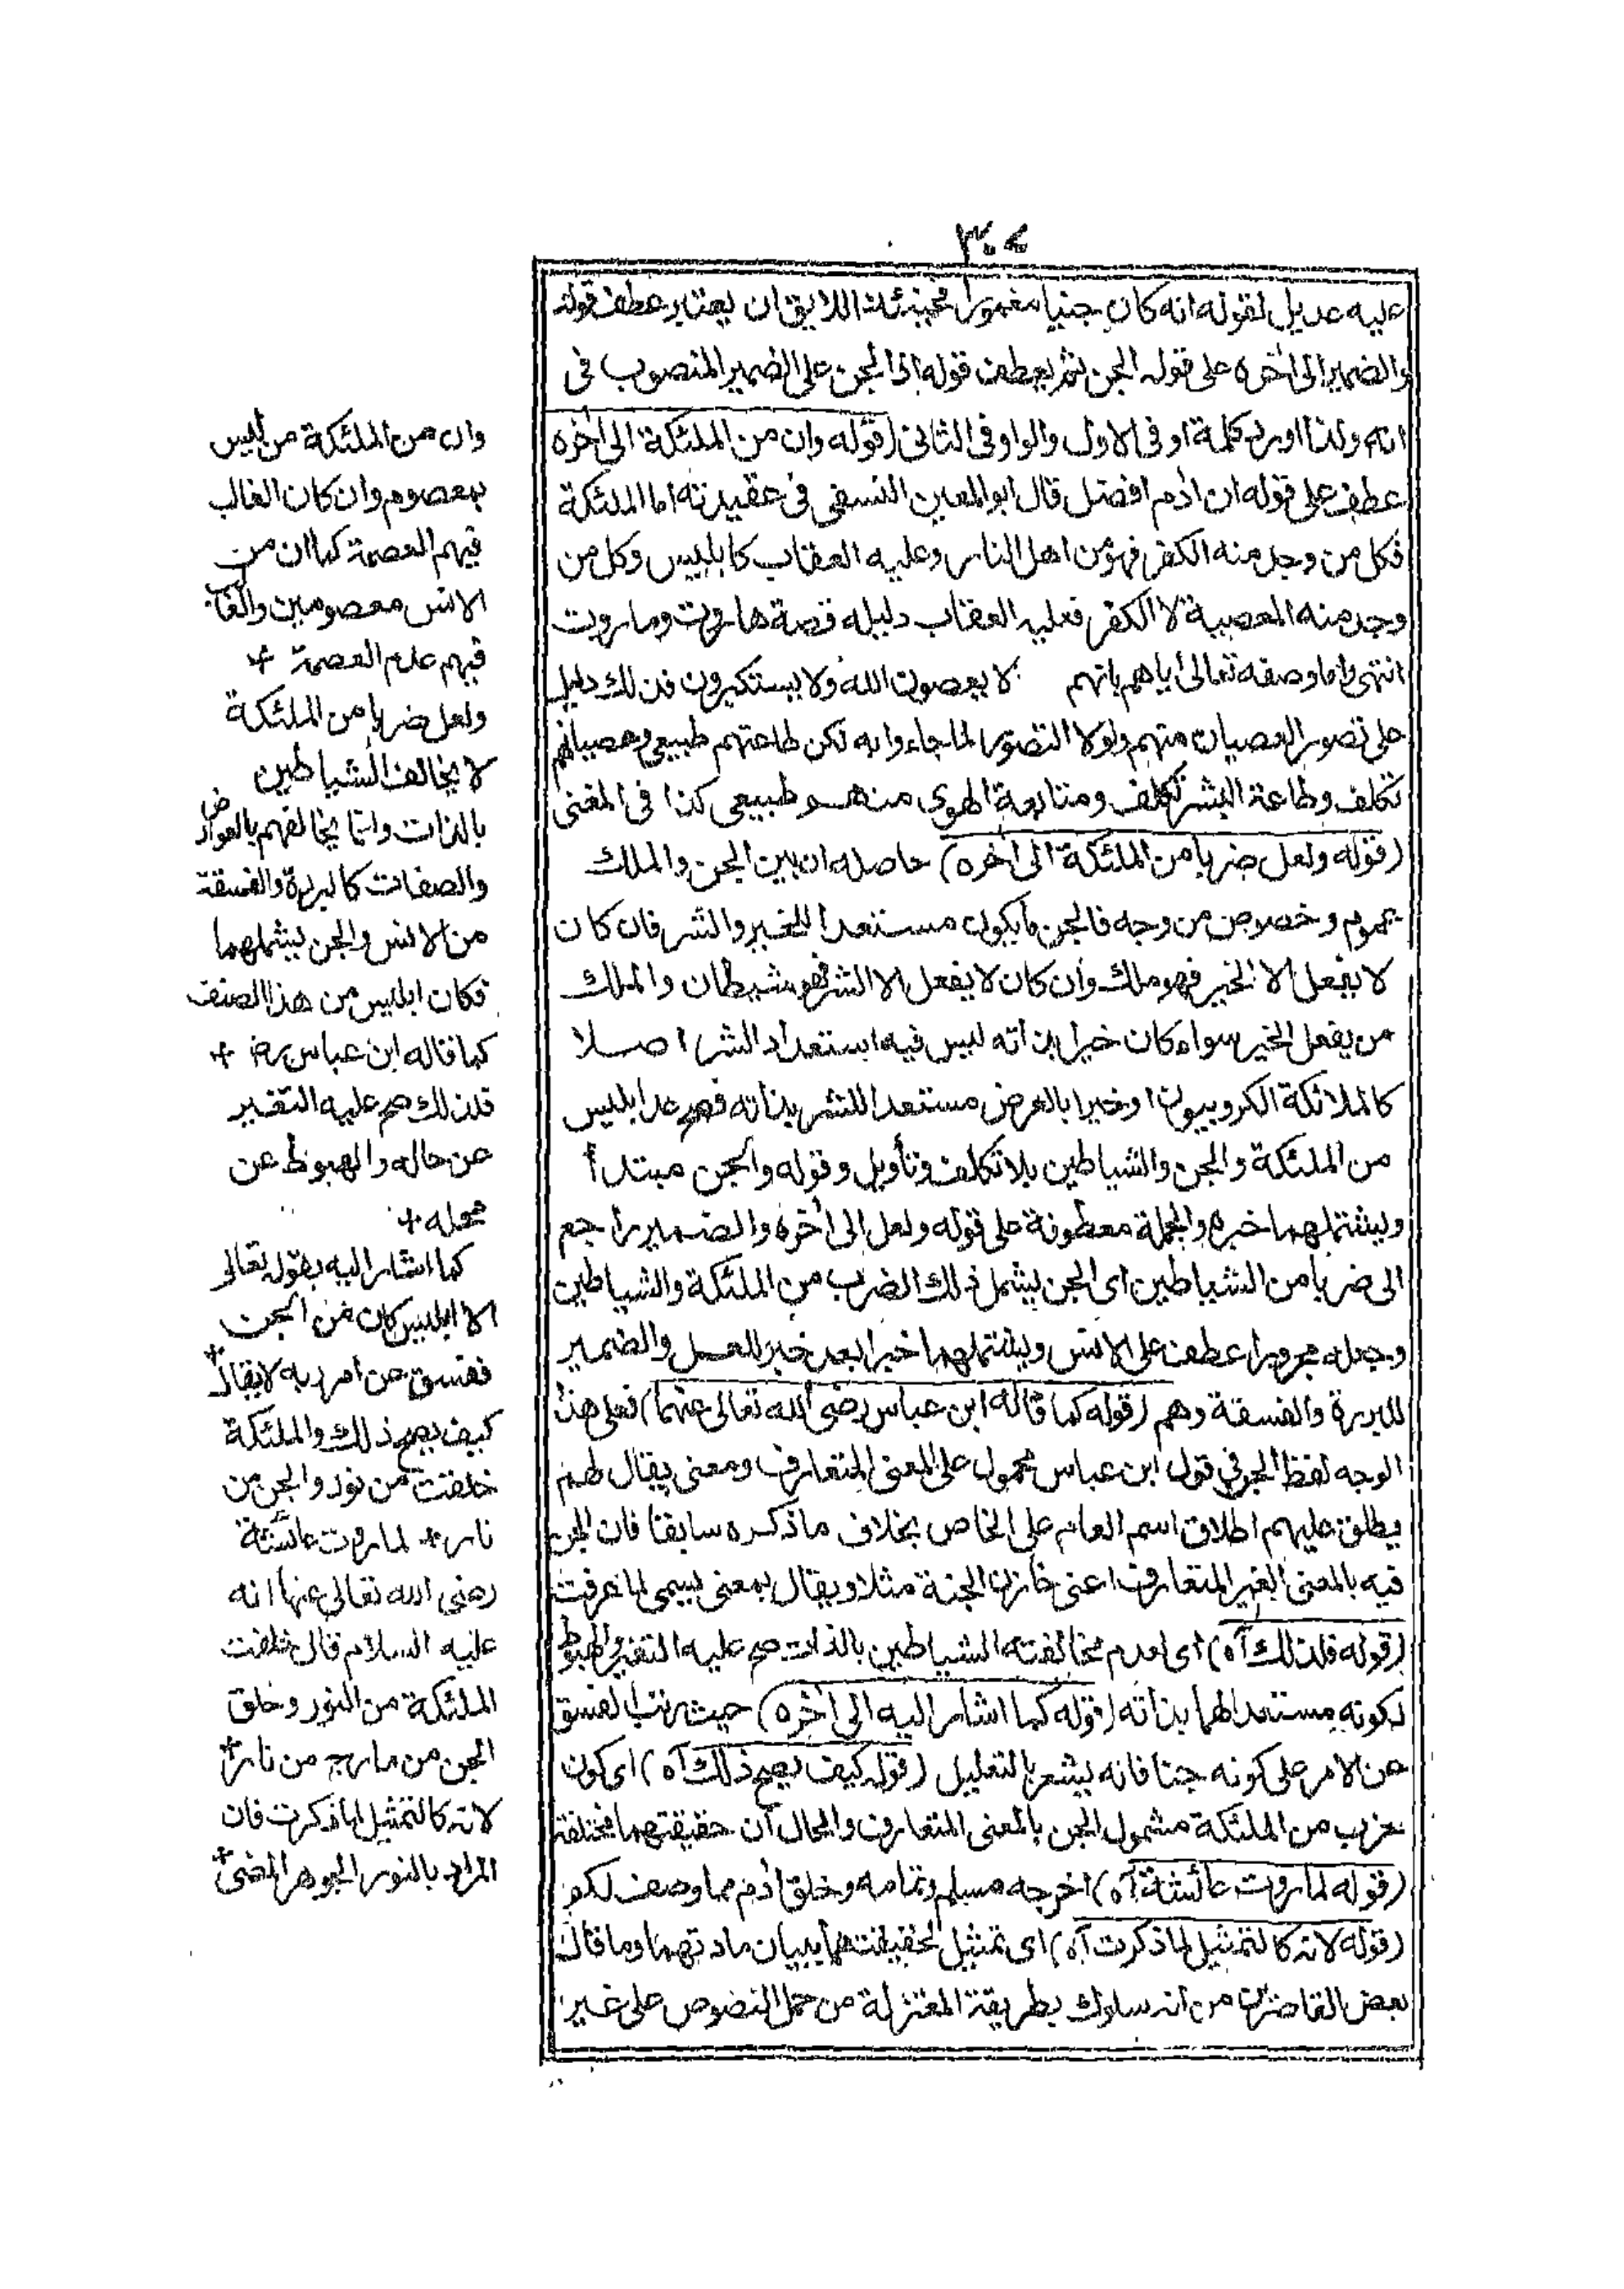 ٣٠٧
عليه عديل لقوله انه كان جنيا مغمورا فحينئذ اللايق ان يعتبر عطف قوله
والضمير الى اخره على قوله الجن ثم يعطف قوله اذ الجن على الضمير المنصوب فى
انهم ولذا اورد كلمة او فى الاول والواو فى الثانى (قوله وان من الملئكة الى اخره
عطف على قوله ان أدم افضل قال ابو المعين النسفى فى عقيدته اما الملئكة
فكل من وجد منه الكفر فهو من اهل النار وعليه العقاب كابليس وكل من
وجد منه المعصية لا الكفر فعليه العقاب دليله قصة هاروت وماروت
انتهى واما وصفه تعالى اياهم بانهم لا يعصون الله ولا يستكبرون فذلك دليل
على تصور العصيان منهم ولولا التصور لما جاء وابه لكن طاعتهم طبيعى وعصيانهم
تكلف وطاعة البشر تكلف ومتابعة الهوى منهم طبيعى كذا فى المغنى
(قوله ولعل ضربا من الملئكة الى اخره) حاصله ان بين الجن والملك
عموم وخصوص من وجه فالجن ما يكون مستعدا للخير والشر فان كان
لا يفعل الا الخير فهو ملك وان كان لا يفعل الا الشر فهو شيطان والملك
من يفعل الخير سواء كان خيرا بذاته ليس فيه استعداد الشر اصلا
كالملائكة الكروبيون او خيرا بالعرض مستعدا للشر بذاته فصح عد ابليس
من الملئكة والجن والشياطين بلا تكلف وتأويل وقوله والجن مبتدأ
ويشتملهما خبره والجملة معطوفة على قوله ولعل الى أخره والضمير راجع
الى ضربا من الشياطين اى الجن يشمل ذلك الضرب من الملئكة والشياطين
وجعله مجرورا عطف على الانس ويشتملهما خبرا بعد خبر للعل والضمير
للبررة والفسقة وهم (قوله كما قاله ابن عباس رضى الله تعالى عنهما) فعلى هذا
الوجه لفظ الجن فى قول ابن عباس محمول على المعنى المتعارف ومعنى يقال لهم
يطلق عليهم اطلاق اسم العام على الخاص بخلاف ما ذكره سابقا فان الجن
فيه بالمعنى الغير المتعارف اعنى خازن الجنة مثلا ويقال بمعنى يسمى لما عرفت
(قوله فلذلك آه) اى لعدم مخالفته الشياطين بالذات صح عليه التغير والهبوط
لكونه مستعدا لهما بذاته (قوله كما اشار اليه الى أخره) حيث رتب الفسق
عن الامر على كونه جنا فانه يشعر بالتعليل (قوله كيف يصح ذلك آه) اى كون
ضرب من الملئكة مشمول الجن بالمعنى المتعارف والحال أن حقيقتهما مختلفة
(قوله لما روت عائشة آه) اخرجه مسلم وتمامه وخلق أدم مما وصف لكم
(قوله لانه كالتمثيل لما ذكرت آه) اى تمثيل لحقيقتهما ببيان مادتهما وما قال
بعض القاصرين من انه سلوك بطريقة المعتزلة من حمل النصوص على غير
وان من الملئكة من ليس
بمعصوم وان كان الغالب
فيهم العصمة كما ان من
الانس معصومين والغالب
فيهم عدم العصمة +
ولعل ضربا من الملئكة
لا يخالف الشياطين
بالذات وانما يخالفهم بالعوارض
والصفات كالبررة والفسقة
من الانس والجن يشملهما
فكان ابليس من هذا الصنف
كما قاله ابن عباس رض +
فلذلك صح عليه التغير
عن حاله والهبوط عن
محله +
كما اشار اليه بقوله تعالى
الا ابليس كان من الجن
ففسق عن امر ربه لا يقال +
كيف يصح ذلك والملئكة
خلقت من نور والجن من
نار + لما روت عائشة
رضى الله تعالى عنها انه
عليه السلام قال خلقت
الملئكة من النور وخلق
الجن من مارج من نار +
لانه كالتمثيل لما ذكرت فان
المراد بالنور الجوهر المضئ +